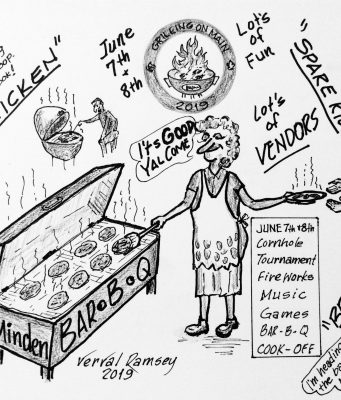 oop.
ook!
ICKEN"
June
7th &
8th
GRILLEING ON MAIN
2019
Lot's
of
Fun
"SPARE RI
Lot's
of
VENDORS
It's GOOD
YAL COME
JUNE 7th & 8th
Cornhole
Tournament
Fire Works
Music
Games
BAR-B-Q
COOK-OFF
Minden
BAR•B•Q
Verval Ramsey
2019
"B
i'm heading
the b